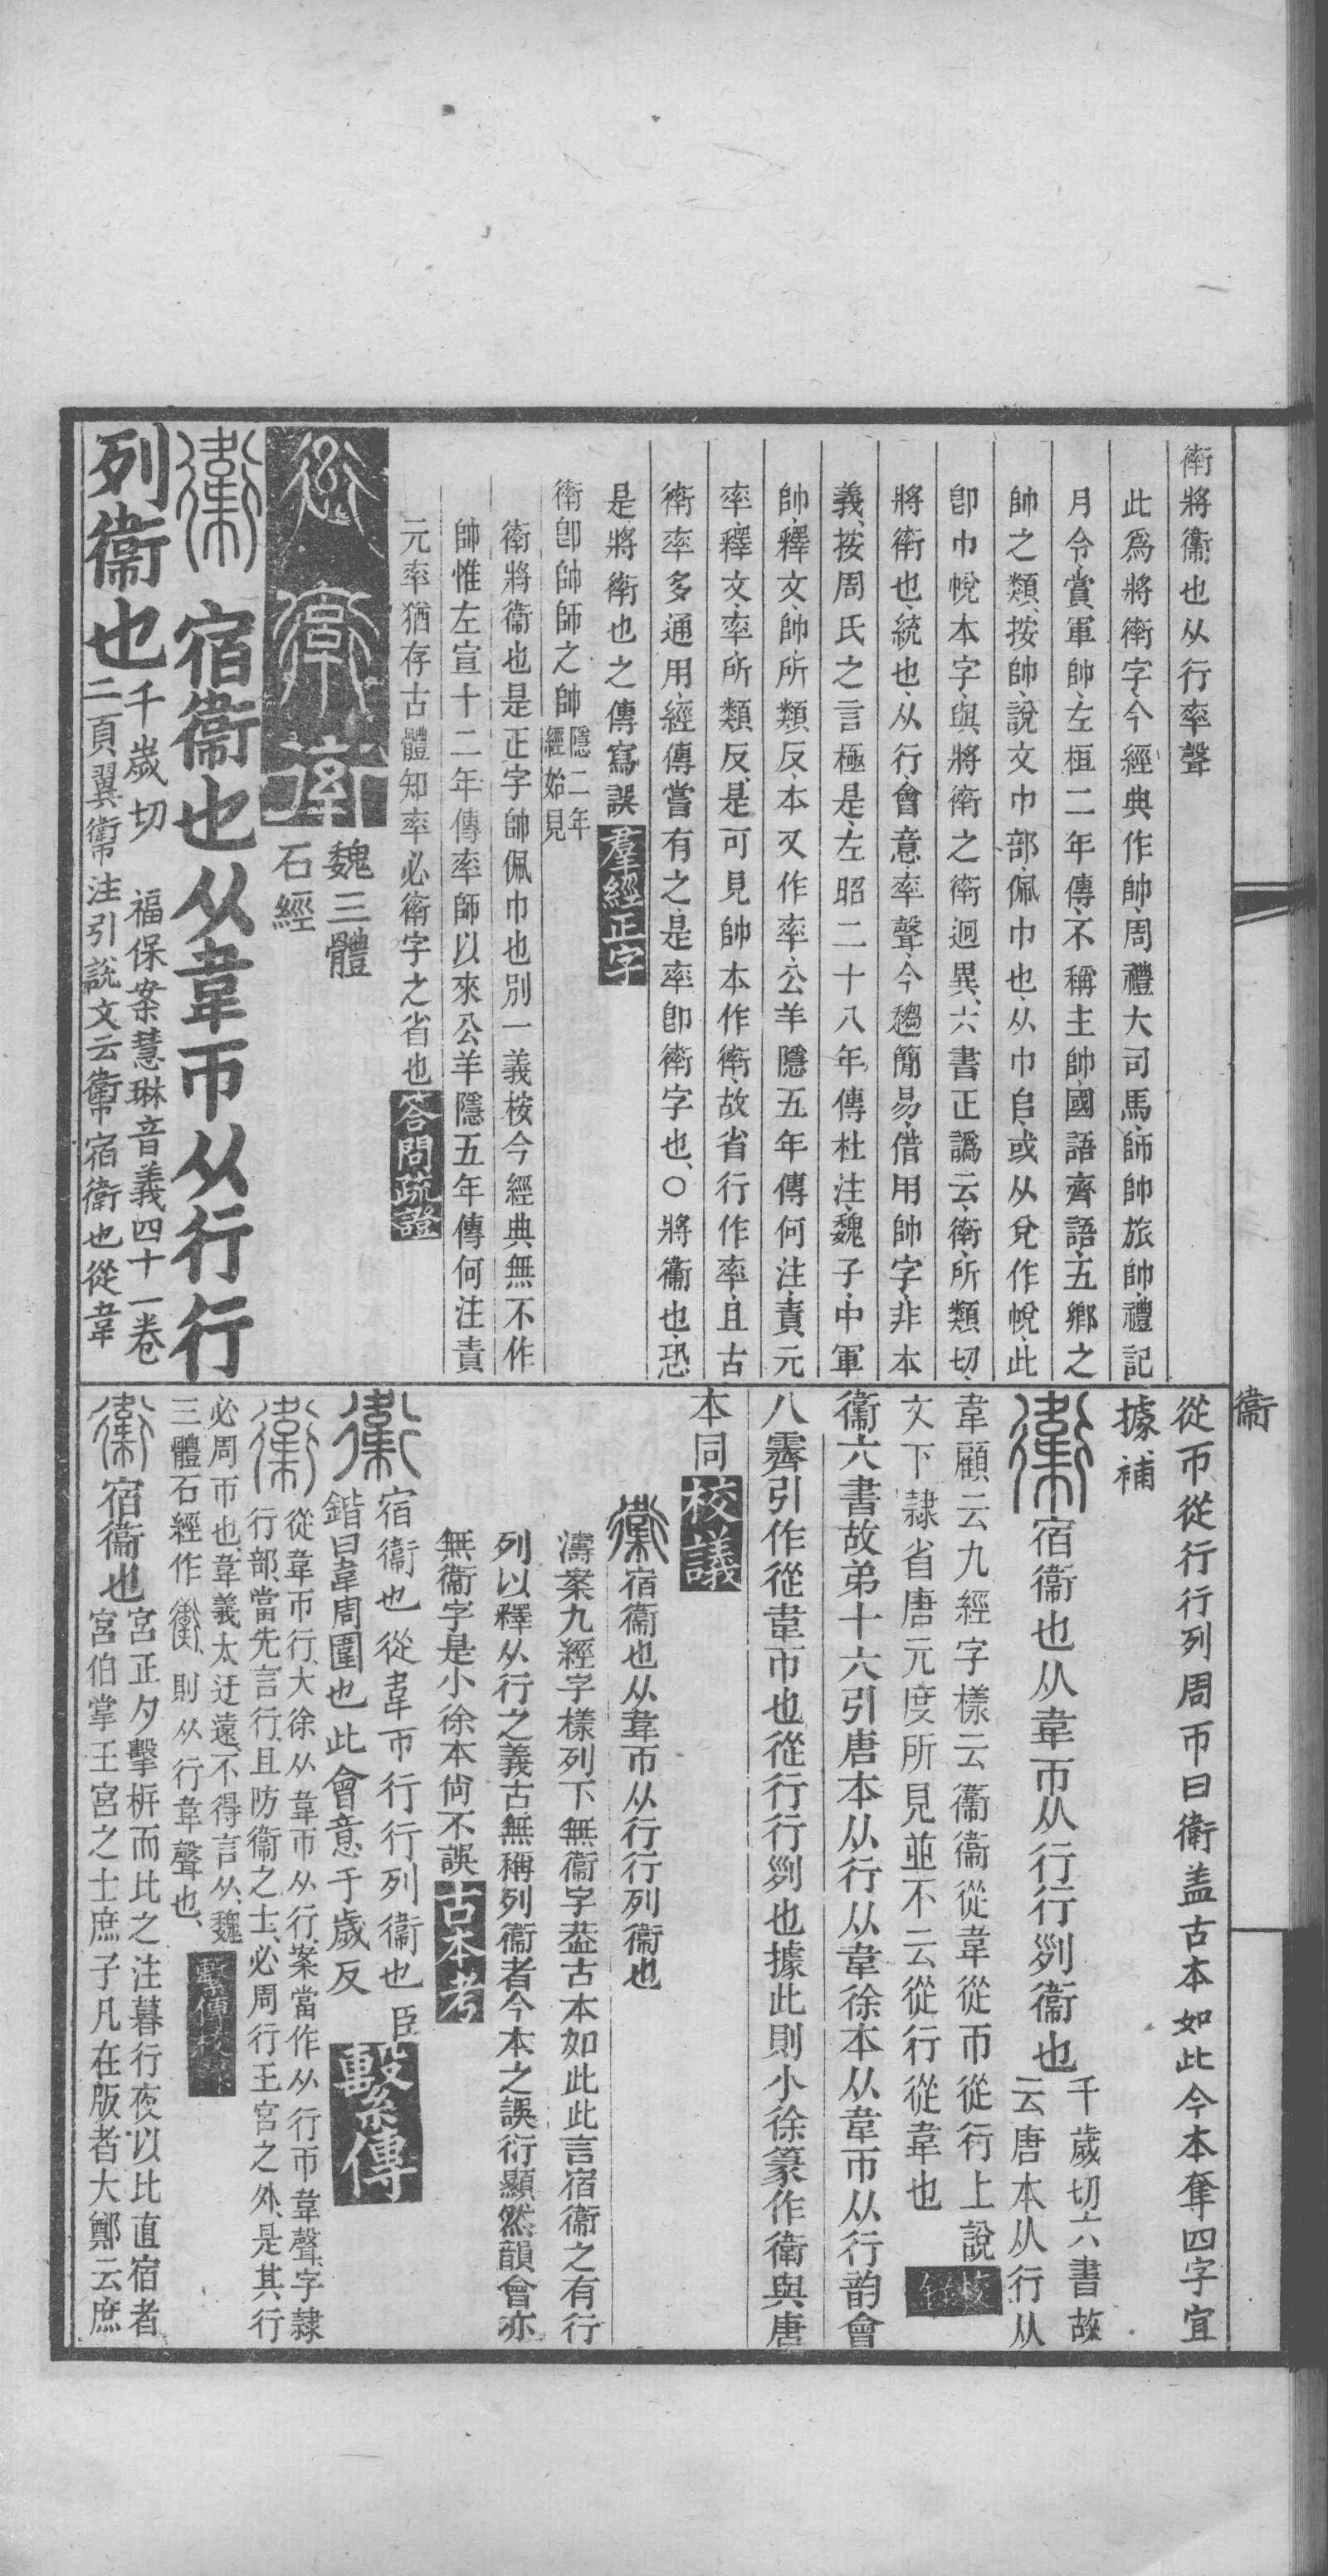 衞
𧗿將衞也从行率聲
此爲將𧗿字今經典作帥周禮大司馬師帥旅帥禮記
月令賞軍帥左桓二年傳不稱主帥國語齊語五鄉之
帥之類按帥說文巾部佩巾也从巾𠂤或从兌作帨此
卽巾帨本字與將𧗿之𧗿迥異六書正譌云𧗿所類切
將𧗿也統也从行會意率聲今趨簡易借用帥字非本
義按周氏之言極是左昭二十八年傳杜注魏子中軍
帥釋文帥所類反本又作率公羊隱五年傳何注責元
率釋文率所類反是可見帥本作𧗿故省行作率且古
𧗿率多通用經傳嘗有之是率卽𧗿字也〇將衞也恐
是將𧗿也之傳寫誤 羣經正字
𧗿卽帥師之帥 隱二年經始見
𧗿將衞也是正字帥佩巾也別一義桉今經典無不作
帥惟左宣十二年傳率師以來公羊隱五年傳何注責
元率猶存古體知率必𧗿字之省也 答問疏證
魏三體
石經
宿衞也从韋帀从行行
列衞也 千歲切 福保案慧琳音義四十一卷
二頁翼衞注引說文云衞宿衞也從韋
從帀從行行列周帀曰衞盖古本如此今本奪四字宜
據補
宿衞也从韋帀从行行列衞也 千歲切六書故
云唐本从行从
韋顧云九經字樣云衞衞從韋從帀從行上說
文下隷省唐元度所見並不云從行從韋也 校錄
衞六書故弟十六引唐本从行从韋徐本从韋帀从行韵會
八霽引作從韋帀也從行行列也據此則小徐篆作衞與唐
本同 校議
宿衞也从韋帀从行行列衞也
濤案九經字樣列下無衞字葢古本如此此言宿衞之有行
列以釋从行之義古無稱列衞者今本之誤衍顯然韻會亦
無衞字是小徐本尙不誤 古本考
宿衞也從韋帀行行列衞也 臣
鍇曰韋周圍也此會意于歲反 繫傳
從韋帀行大徐从韋帀从行案當作从行帀韋聲字隷
行部當先言行且防衞之士必周行王宮之外是其行
必周帀也韋義太迂遠不得言从魏
三體石經作衞則从行韋聲也 繫傳校錄
宿衞也 宮正夕擊柝而比之注暮行夜以比直宿者
宮伯掌王宮之士庶子凡在版者大鄭云庶